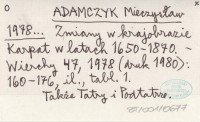 O ADAMCZYK Mieczysław
1978... Zmiany w krajobrazie
Karpat w latach 1650-1870. -
Wierchy 47, 1978 (druk 1980):
160-176, il., tabl. 1.
Także Tatry i Podtatrze.